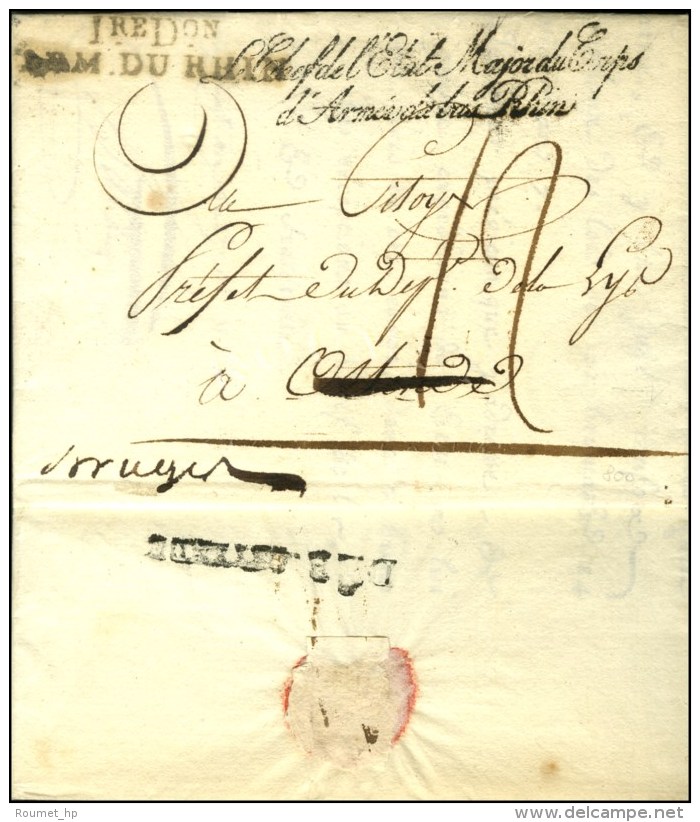 1RE DON
ARM. DU RHIN
Le Chef de l'Etat Major du Corps
d'Armée du bas Rhin
Citoyn
Préfet du Depr. de la Lys
à Ostende
Bruges
DÉB.
800
Roumet_hp
www.delcampe.net